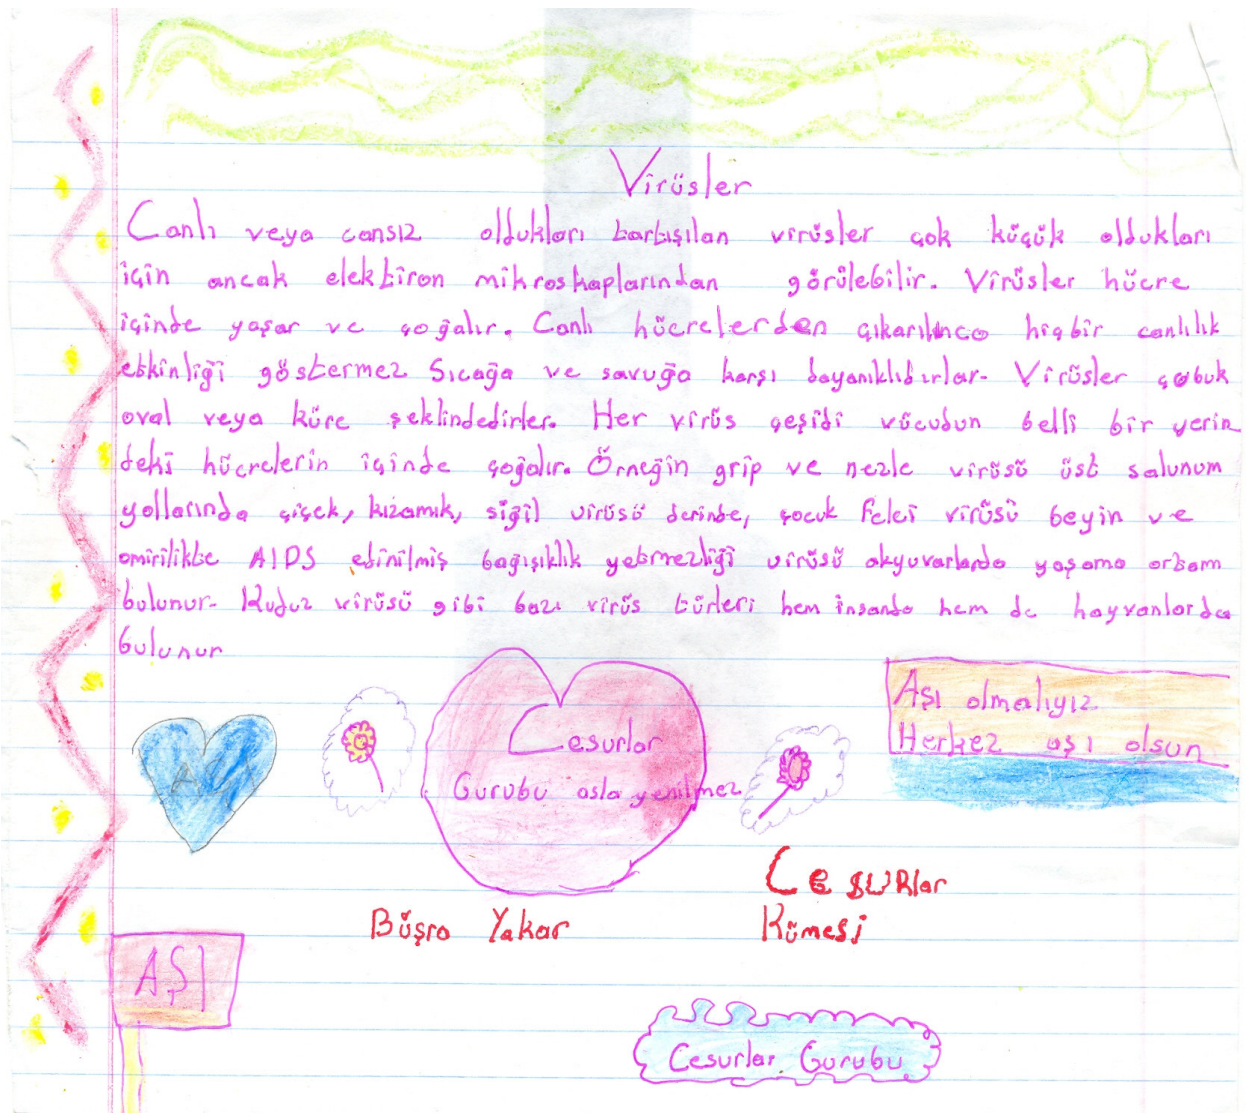 Virüsler
Canlı veya cansız oldukları tartışılan virüsler çok küçük oldukları
için ancak elektiron mikroskaplarından görülebilir. Virüsler hücre
içinde yaşar ve çoğalır. Canlı hücrelerden çıkarılınca hiçbir canlılık
etkinliği göstermez Sıcağa ve savuğa karşı dayanıklıdırlar. Virüsler çubuk
oval veya küre şeklindedirler. Her virüs çeşidi vücudun belli bir yerin
deki hücrelerin içinde çoğalır. Örneğin grip ve nezle virüsü üst salunum
yollarında çiçek, kızamık, siğil virüsü derinde, çocuk felci virüsü beyin ve
omirilikte AIDS edinilmiş bağışıklık yetmezliği virüsü akyuvarlarda yaşama ortam
bulunur. Kuduz virüsü gibi bazı virüs türleri hem insanda hem de hayvanlarda
bulunur
Aşı olmalıyız
Herkez aşı olsun
Cesurlar
Gurubu asla yenilmez
AŞI
Cesurlar
Kümesi
Büşra Yakar
AŞI
Cesurlar Gurubu